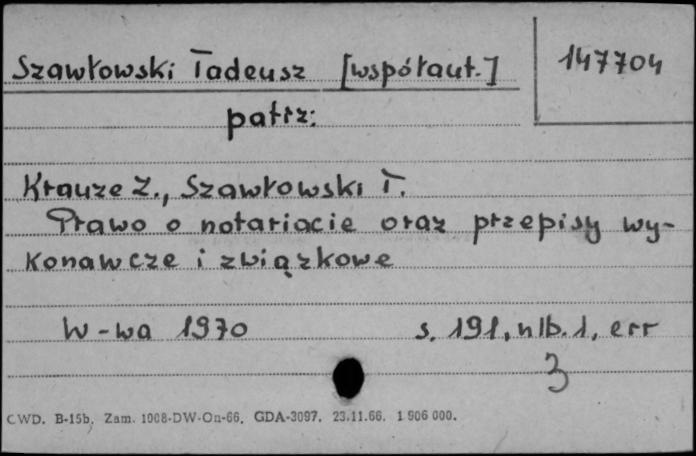 147704
Szawłowski Tadeusz [współaut.]
patrz:
Krauze Z., Szawłowski T.
Prawo o notariacie oraz przepisy wy-
konawcze i związkowe
W-wa 1970 s. 191, nlb. 1, err
3
CWD. B-15b. Zam. 1008-DW-On-66. GDA-3097. 23.11.66. 1 906 000.